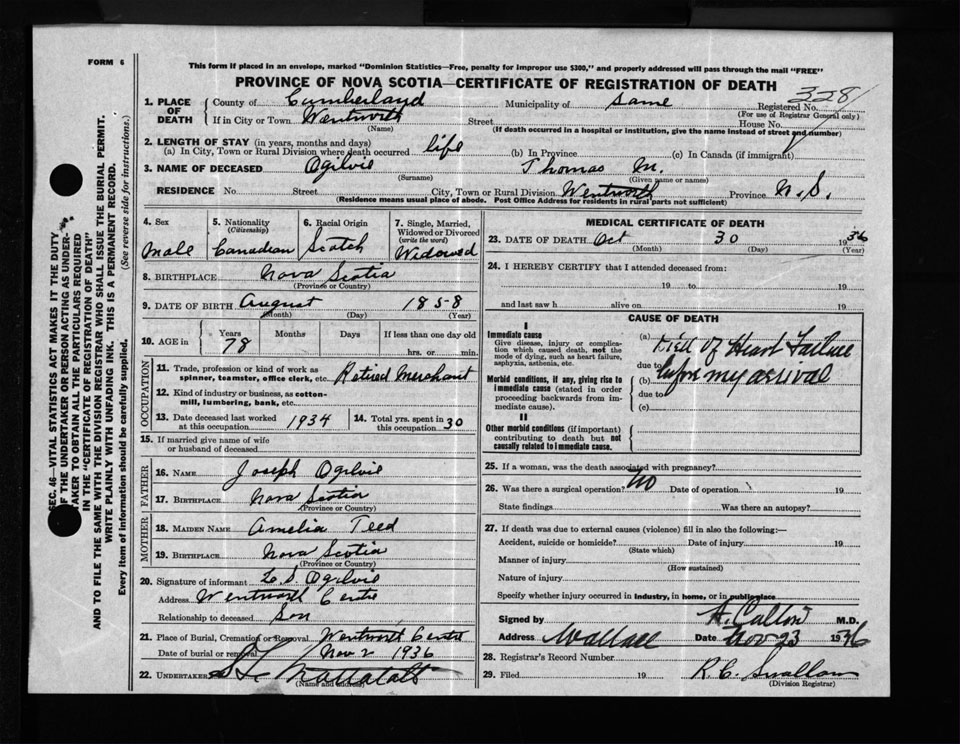 FORM 6
This form if placed in an envelope, marked "Dominion Statistics—Free, penalty for improper use $300," and properly addressed will pass through the mail "FREE"
PROVINCE OF NOVA SCOTIA—CERTIFICATE OF REGISTRATION OF DEATH
328
1. PLACE OF DEATH County of Cumberland Municipality of Same Registered No.
(For use of Registrar General only)
If in City or Town Wentworth Street House No.
(Name) (If death occurred in a hospital or institution, give the name instead of street and number)
2. LENGTH OF STAY (in years, months and days)
(a) In City, Town or Rural Division where death occurred life (b) In Province (c) In Canada (if immigrant)
3. NAME OF DECEASED Ogilvie Thomas M.
(Surname) (Given name or names)
RESIDENCE No. Street City, Town or Rural Division Wentworth Province N.S.
(Residence means usual place of abode. Post Office Address for residents in rural parts not sufficient)
4. Sex 5. Nationality (Citizenship) 6. Racial Origin 7. Single, Married, Widowed or Divorced (write the word)
Male Canadian Scotch Widowed
8. BIRTHPLACE Nova Scotia
(Province or Country)
9. DATE OF BIRTH August 1858
(Month) (Day) (Year)
10. AGE in Years Months Days If less than one day old
78 hrs. or min.
OCCUPATION
11. Trade, profession or kind of work as spinner, teamster, office clerk, etc. Retired Merchant
12. Kind of industry or business, as cotton-mill, lumbering, bank, etc.
13. Date deceased last worked at this occupation 1934 14. Total yrs. spent in this occupation 30
15. If married give name of wife or husband of deceased
FATHER
16. NAME Joseph Ogilvie
17. BIRTHPLACE Nova Scotia
(Province or Country)
MOTHER
18. MAIDEN NAME Amelia Teed
19. BIRTHPLACE Nova Scotia
(Province or Country)
20. Signature of informant Ogilvie
Address Wentworth Centre
Relationship to deceased Son
21. Place of Burial, Cremation or Removal Wentworth Centre
Date of burial or removal Nov 2 1936
22. UNDERTAKER
(Name and address)
MEDICAL CERTIFICATE OF DEATH
23. DATE OF DEATH Oct 30 1936
(Month) (Day) (Year)
24. I HEREBY CERTIFY that I attended deceased from:
19 to 19
and last saw h alive on 19
CAUSE OF DEATH
I
Immediate cause
Give disease, injury or complication which caused death, not the mode of dying, such as heart failure, asphyxia, asthenia, etc.
(a) Died of Heart Failure
due to
Morbid conditions, if any, giving rise to immediate cause (stated in order proceeding backwards from immediate cause).
(b) before my arrival
due to
(c)
II
Other morbid conditions (if important) contributing to death but not causally related to immediate cause.
25. If a woman, was the death associated with pregnancy?
26. Was there a surgical operation? No Date of operation 19
State findings Was there an autopsy?
27. If death was due to external causes (violence) fill in also the following:—
Accident, suicide or homicide? Date of injury 19
(State which)
Manner of injury
(How sustained)
Nature of injury
Specify whether injury occurred in industry, in home, or in public place
Signed by M.D.
Address Wallace Date Nov 23 1936
28. Registrar's Record Number
29. Filed 19 R. C. Swallow
(Division Registrar)
SEC. 46—VITAL STATISTICS ACT MAKES IT THE DUTY OF THE UNDERTAKER OR PERSON ACTING AS UNDERTAKER TO OBTAIN ALL THE PARTICULARS REQUIRED IN THE "CERTIFICATE OF REGISTRATION OF DEATH"
AND TO FILE THE SAME WITH THE DIVISION REGISTRAR WHO SHALL ISSUE THE BURIAL PERMIT.
WRITE PLAINLY WITH UNFADING INK. THIS IS A PERMANENT RECORD.
Every item of information should be carefully supplied. (See reverse side for instructions.)